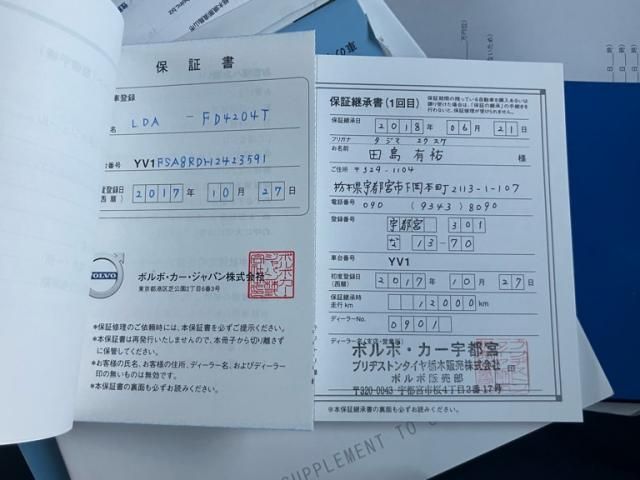 保証書
車登録
名 LDA － FD4204T
台番号 YV1FSA8RDH2423591
度登録日 (西暦) 2017年10月27日
VOLVO
ボルボ・カー・ジャパン株式会社
東京都港区芝公園2丁目6番3号
＊保証修理のご依頼時には、本保証書を必ずご提示ください。
＊本保証書は再発行いたしませんので、本冊子から切り離さず
に保管してください。
＊お客様の氏名、お客様の住所、ディーラー名、およびディーラー
印の無いものは無効です。
＊本保証書の裏面も必ずお読みください。
保証継承書（1回目）
保証継承日 2018年06月21日
フリガナ
お名前 田島 有祐 様
ご住所 〒329-1104
栃木県宇都宮市下岡本町2113-1-107
電話番号 090 (9343) 8090
登録番号 宇都宮 301
な 13-70
車台番号 YV1
初度登録日 (西暦) 2017年10月27日
保証継承時 走行 km 12000 km
ディーラーNo. 0901
ディーラー名
ボルボ・カー宇都宮
ブリヂストンタイヤ栃木販売株式会社 印
ボルボ販売部
〒320-0043 宇都宮市桜4丁目2番17号
＊本保証継承書の裏面も必ずお読みください。
SUPPLEMENT TO